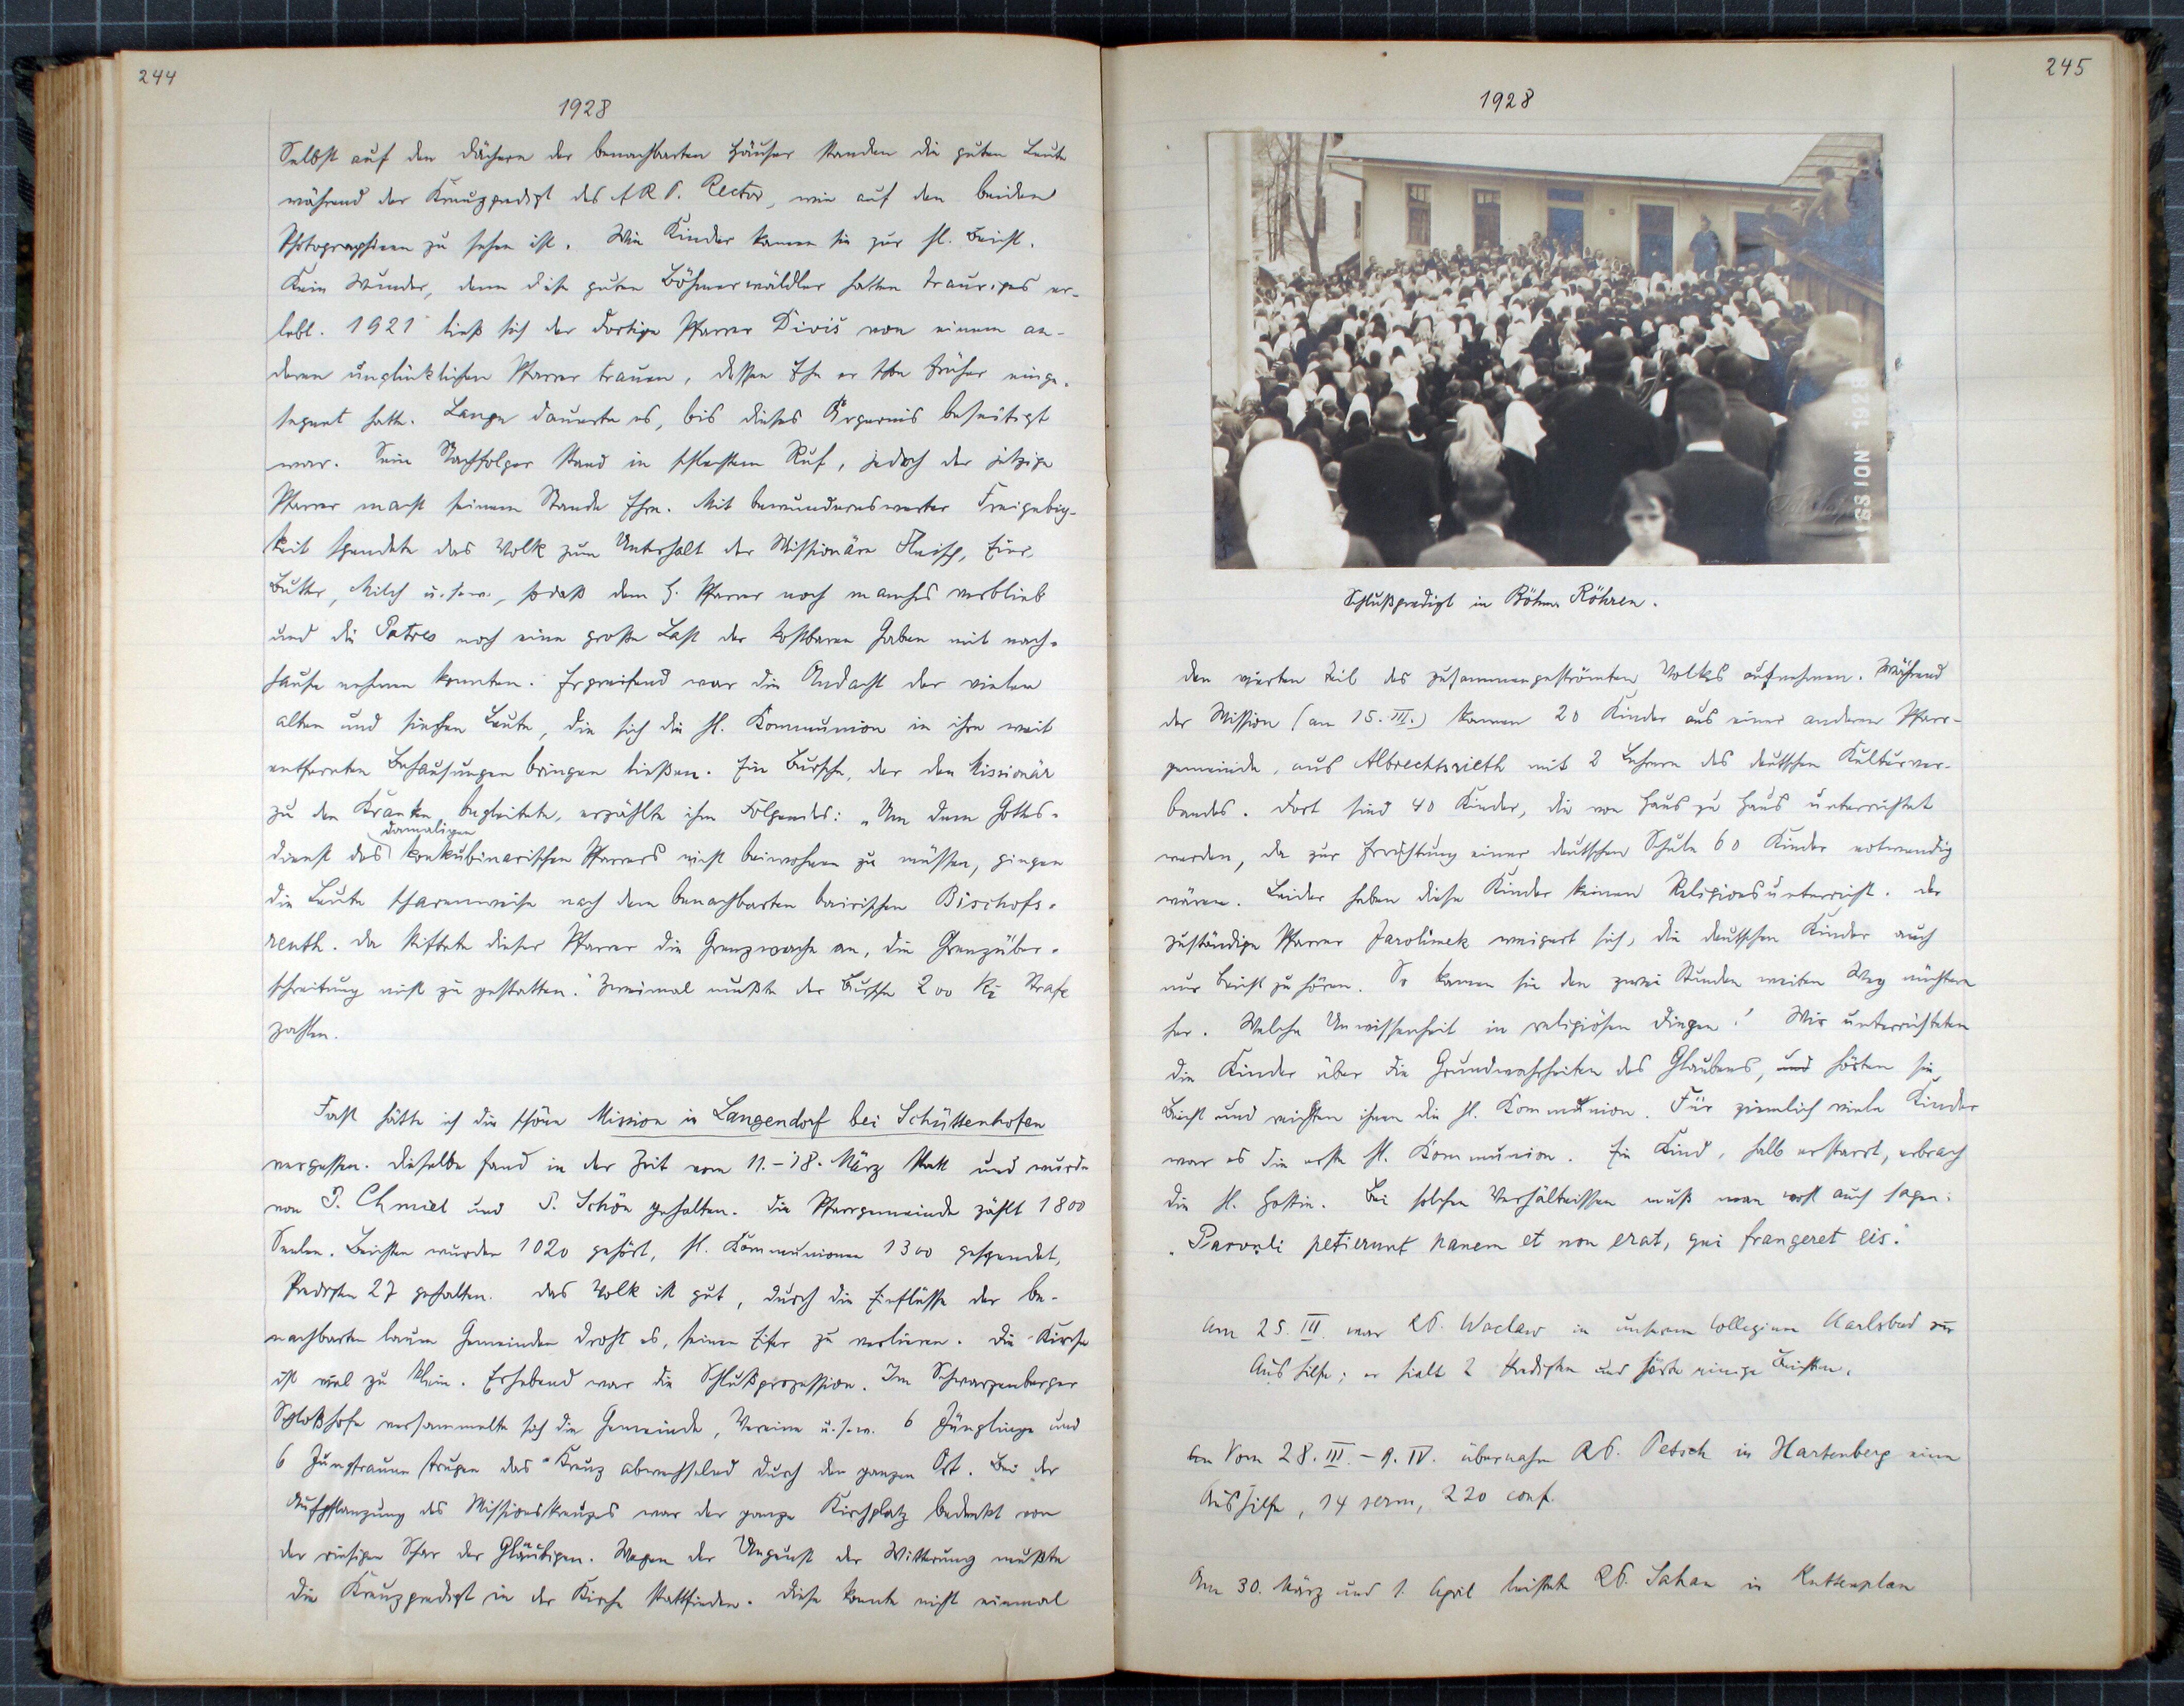 244
1928
Selbst auf den Dächern der benachbarten Häuser standen die guten Leute
während der Kreuzpredigt des A.R.P. Rector, wie auf den beiden
Photographieen zu sehen ist. Wie Kinder kamen sie zur hl. Beicht.
Kein Wunder, denn diese guten Böhmerwäldler hatten trauriges er-
lebt. 1921 ließ sich der dortige Pfarrer Diviš von einem an-
deren unglücklichen Pfarrer trauen, dessen Ehe er früher einge-
segnet hatte. Lange dauerte es, bis dieses Ärgernis beseitigt
war. Sein Nachfolger stand in schlechtem Ruf, jedoch der jetzige
Pfarrer macht seinem Stande Ehre. Mit bewundernswerter Freigebig-
keit spendete das Volk zum Unterhalt der Missionäre Fleisch, Eier,
Butter, Milch u.s.w., sodaß dem H. Pfarrer noch manches verblieb
und die Patres noch eine große Last der kostbaren Gaben mit nach-
hause nehmen konnten. Ergreifend war die Andacht der vielen
alten und siechen Leute, die sich die hl. Kommunion in ihre weit
entfernten Behausungen bringen ließen. Ein Bursche, der den Missionär
zu den Kranken begleitete, erzählte ihm Folgendes: „Um dem Gottes-
damaligen
dienst des konkubinarischen Pfarrers nicht beiwohnen zu müssen, gingen
die Leute scharenweise nach dem benachbarten bairischen Bischofs-
reuth. Da stiftete dieser Pfarrer die Grenzwache an, die Grenzüber-
schreitung nicht zu gestatten." Zweimal mußte der Bursche 200 Kč Strafe
zahlen.
Fast hätte ich die schöne Mission in Langendorf bei Schüttenhofen
vergessen. Dieselbe fand in der Zeit vom 11.-18. März statt und wurde
von P. Chmiel und P. Schön gehalten. Die Pfarrgemeinde zählt 1800
Seelen. Beichten wurden 1020 gehört, hl. Kommunionen 1300 gespendet,
Predigten 27 gehalten. Das Volk ist gut, durch die Einflüsse der be-
nachbarten lauen Gemeinden droht es, seinen Eifer zu verlieren. Die Kirche
ist viel zu klein. Erhebend war die Schlußprozession. Im Schwarzenberger
Schloßhofe versammelte sich die Gemeinde, Vereine u.s.w. 6 Jünglinge und
6 Jungfrauen trugen das Kreuz abwechselnd durch den ganzen Ort. Bei der
Aufpflanzung des Missionskreuzes war der ganze Kirchplatz bedeckt von
der riesigen Schar der Gläubigen. Wegen der Ungunst der Witterung mußte
die Kreuzpredigt in der Kirche stattfinden. Diese konnte nicht einmal
245
1928
MISSION 1928
Schlußpredigt in Böhm. Röhren.
den vierten Teil des zusammengeströmten Volkes aufnehmen. Während
der Mission (am 15. III.) kamen 20 Kinder aus einer anderen Pfarr-
gemeinde, aus Albrechtsrieth mit 2 Lehrern des deutschen Kulturver-
bandes. Dort sind 40 Kinder, die von Haus zu Haus unterrichtet
werden, da zur Errichtung einer deutschen Schule 60 Kinder notwendig
wären. Leider haben diese Kinder keinen Religionsunterricht. Der
zuständige Pfarrer Jarolimek weigert sich, die deutschen Kinder auch
nur Beicht zu hören. So kamen sie den zwei Stunden weiten Weg nüchtern
her. Welche Unwissenheit in religiösen Dingen! Wir unterrichteten
die Kinder über die Grundwahrheiten des Glaubens, und hörten sie
Beicht und reichten ihnen die hl. Kommunion. Für ziemlich viele Kinder
war es die erste hl. Kommunion. Ein Kind, halb erstarrt, erbrach
die hl. Hostie. Bei solchen Verhältnissen muß man wohl auch sagen:
„Parvuli petierunt panem et non erat, qui frangeret eis."
Am 25. III. war R.P. Waclaw in unserem Collegium Karlsbad zur
Aushilfe; er hielt 2 Predigten und hörte einige Beichten.
Am Vom 28. III. - 9. IV. übernahm R.P. Petsch in Hartenberg eine
Aushilfe, 14 serm, 220 conf.
Am 30. März und 1. April leistete R.P. Sahan in Kuttenplan